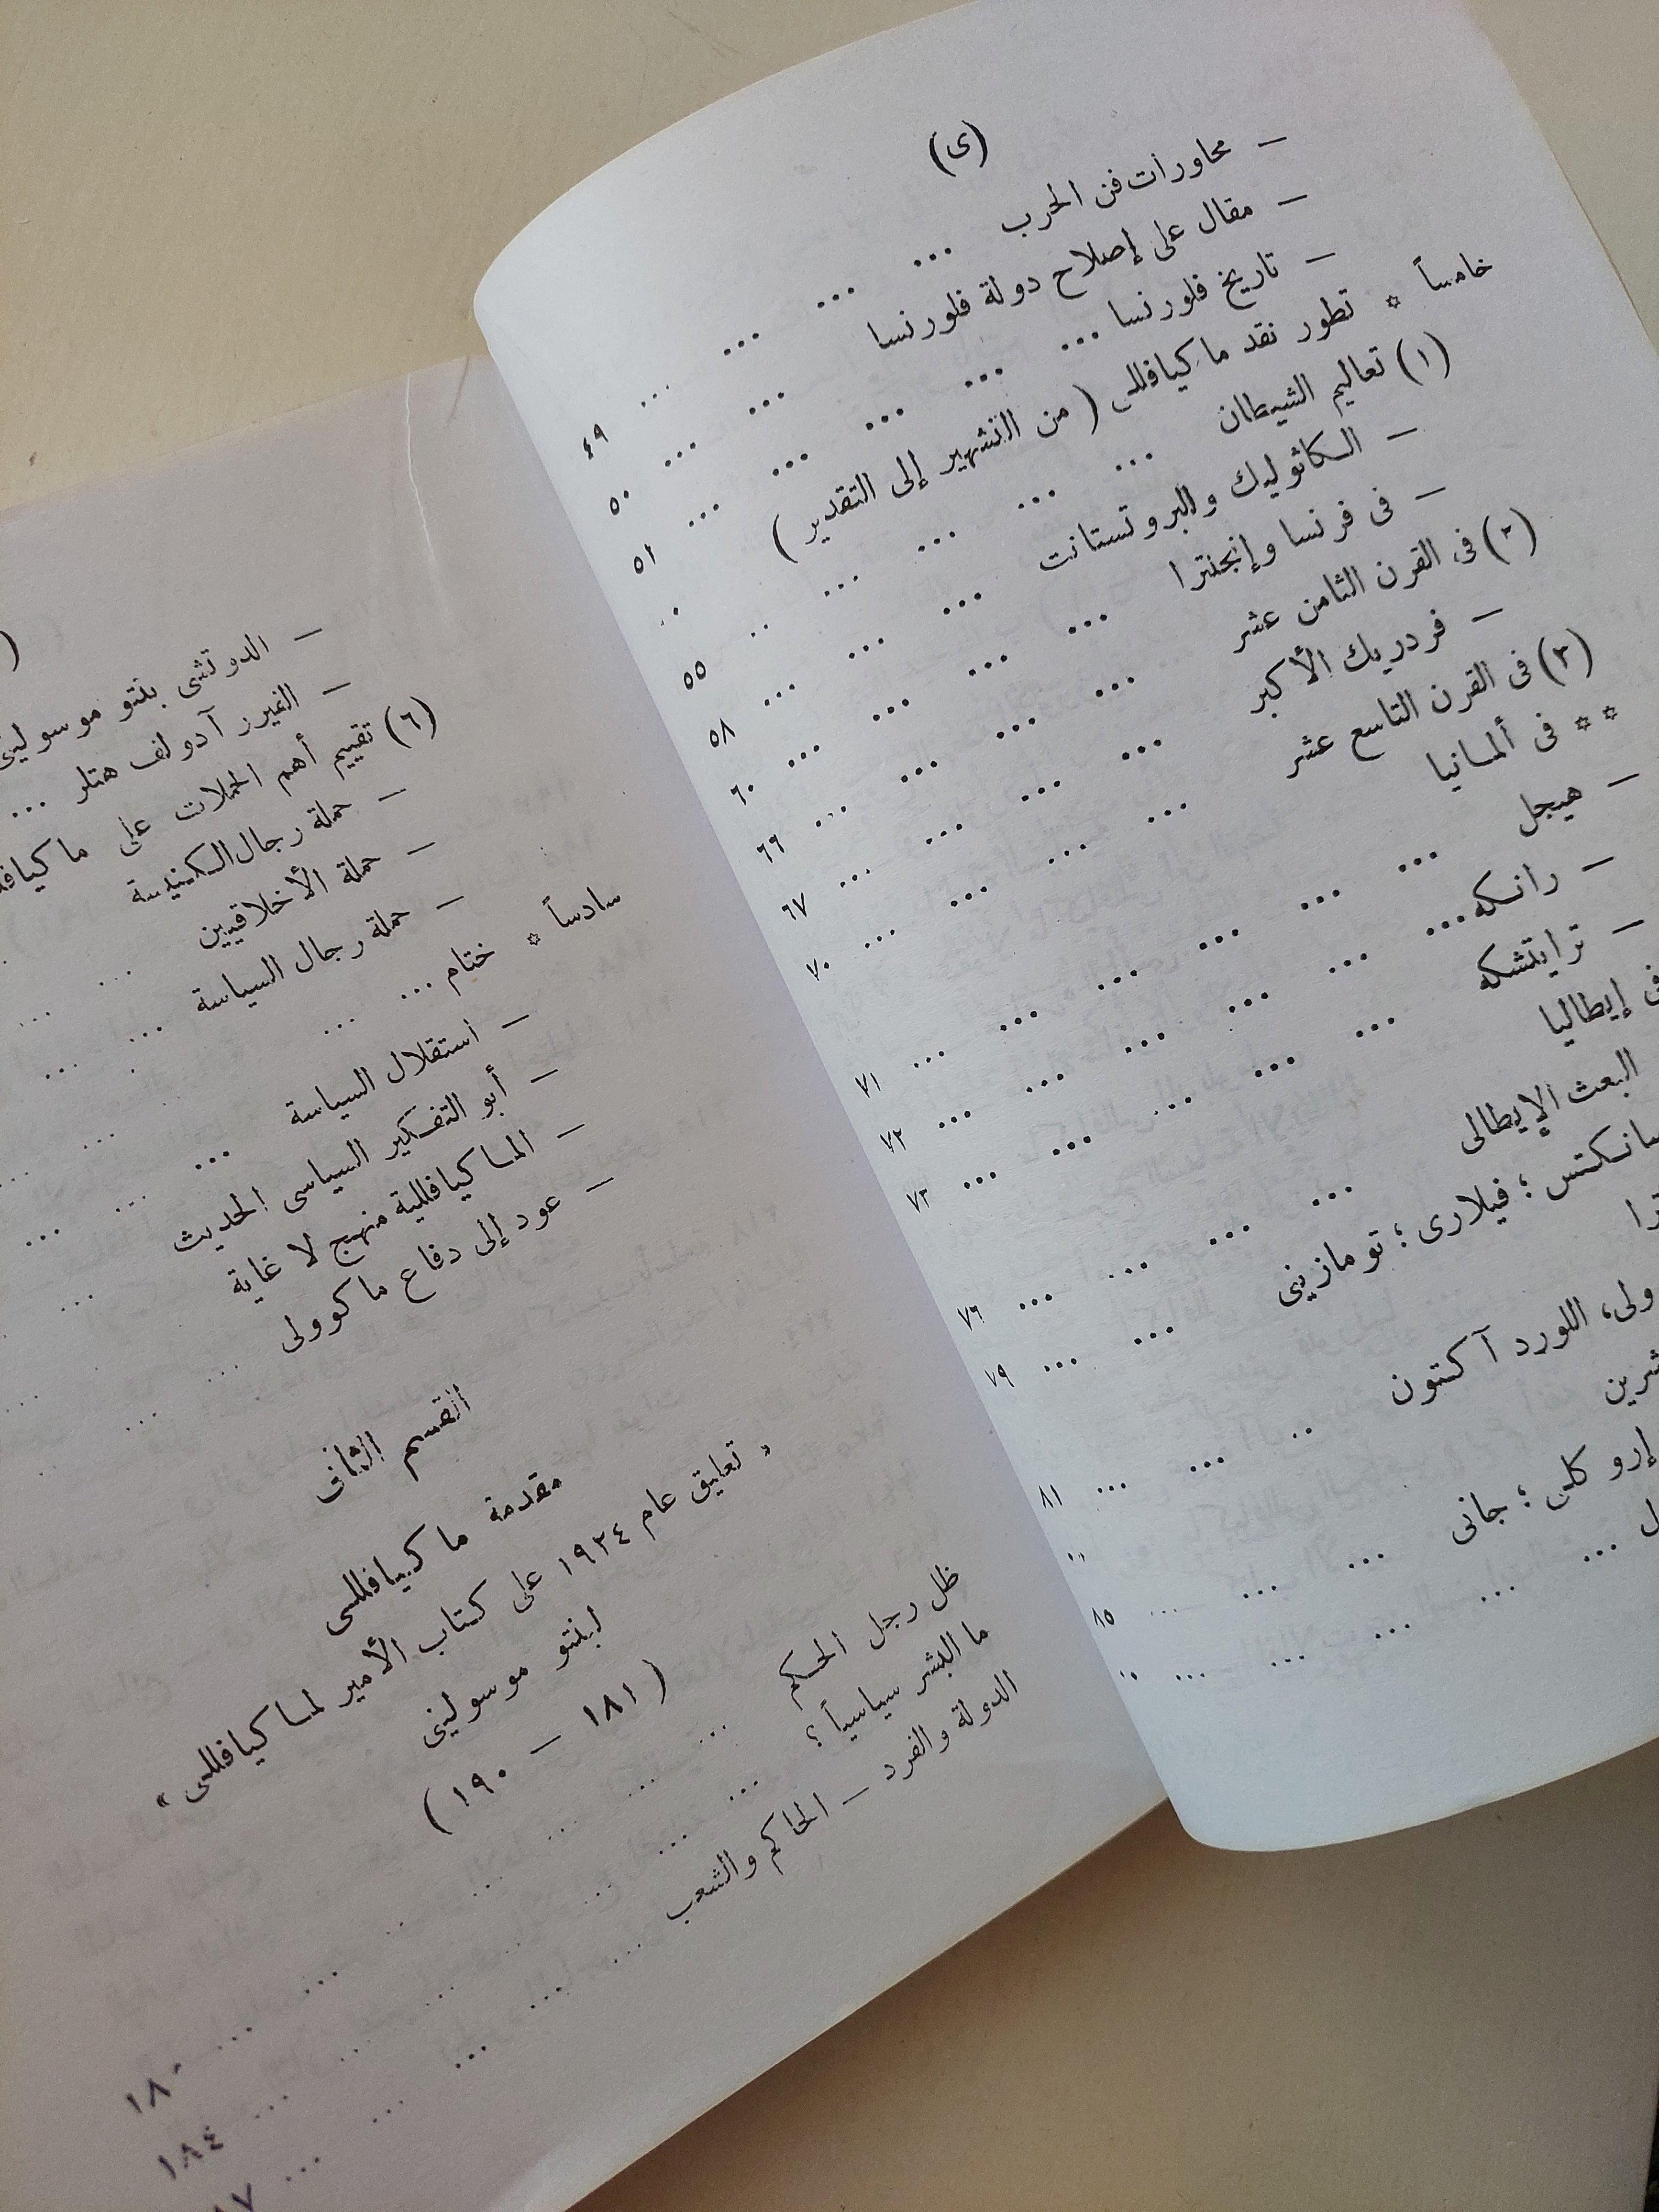 (ى)
– محاورات فن الحرب ... ... ... ... ٤٩
– مقال على إصلاح دولة فلورنسا ... ... ٥٠
– تاريخ فلورنسا ... ... ... ... ... ٥١
خامساً * تطور نقد ماكيافللى ( من التشهير إلى التقدير )
(١) تعاليم الشيطان ... ... ... ... ... ٥٥
– الكاثوليك والبروتستانت ... ... ... ٥٨
– فى فرنسا وإنجلترا ... ... ... ... ٦٠
(٢) فى القرن الثامن عشر ... ... ... ... ٦٦
– فردريك الأكبر ... ... ... ... ٦٧
(٣) فى القرن التاسع عشر ... ... ... ... ٧٠
** فى ألمانيا
– هيجل ... ... ... ... ... ... ٧١
– رانكه ... ... ... ... ... ... ٧٢
– ترايتشكه ... ... ... ... ... ٧٣
فى إيطاليا
البعث الإيطالى ... ... ... ... ٧٦
سانكتس ؛ فيلارى ؛ تومازينى ... ... ٧٩
ولى، اللورد آكتون ... ... ... ٨١
إروكلن ؛ جانى ... ... ... ٨٥
– الدوتشى بنتو موسولينى
– الفيرر آدولف هتلر ...
(٦) تقييم أهم الحملات على
– حملة رجال الكنيسة
– حملة الأخلاقيين ... ...
– حملة رجال السياسة ... ...
سادساً * ختام ... ...
– استقلال السياسة ... ...
– أبو التفكير السياسى الحديث
– الماكيافللية منهج لا غاية ...
– عود إلى دفاع ماكولى ... ...
القسم الثانى
مقدمة ماكيافللى
« تعليق عام ١٩٢٤ على كتاب الأمير لماكيافللى »
لبنتو موسولينى
( ١٨١ – ١٩٠ )
ظل رجل الحكم ... ... ... ...
ما البشر سياسياً ؟ ... ... ... ... ١٨٤
الدولة والفرد – الحاكم والشعب ... ... ...